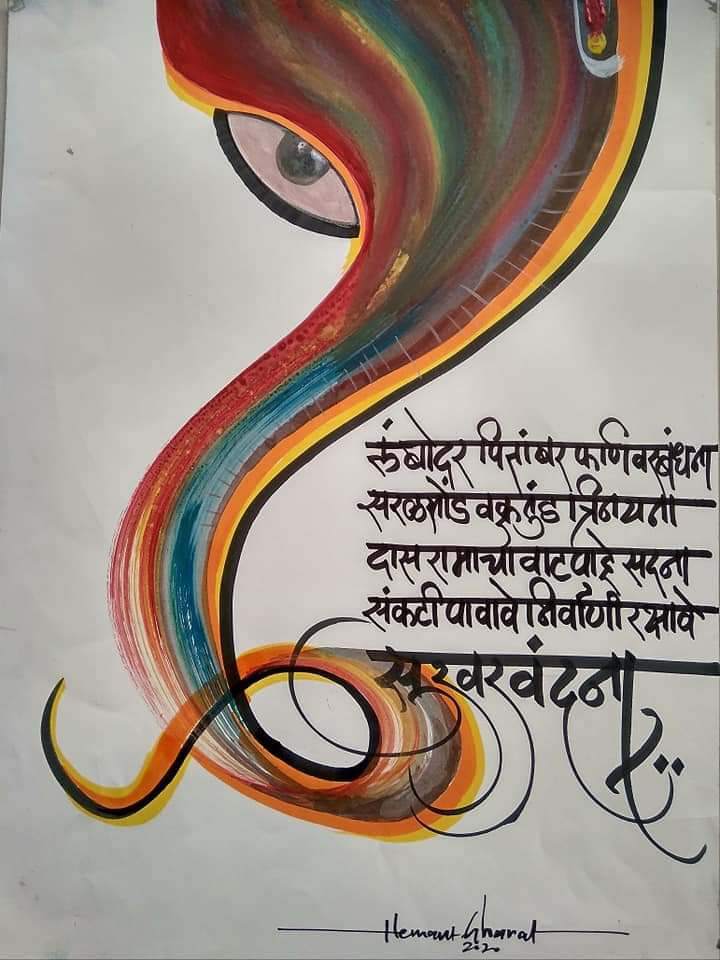 लंबोदर पितांबर फणिवरबंधना
सरळसोंड वक्रतुंड त्रिनयना
दास रामाचा वाट पाहे सदना
संकटी पावावे निर्वाणी रक्षावे
सूरवरवंदना
Hemant Gharat
2020